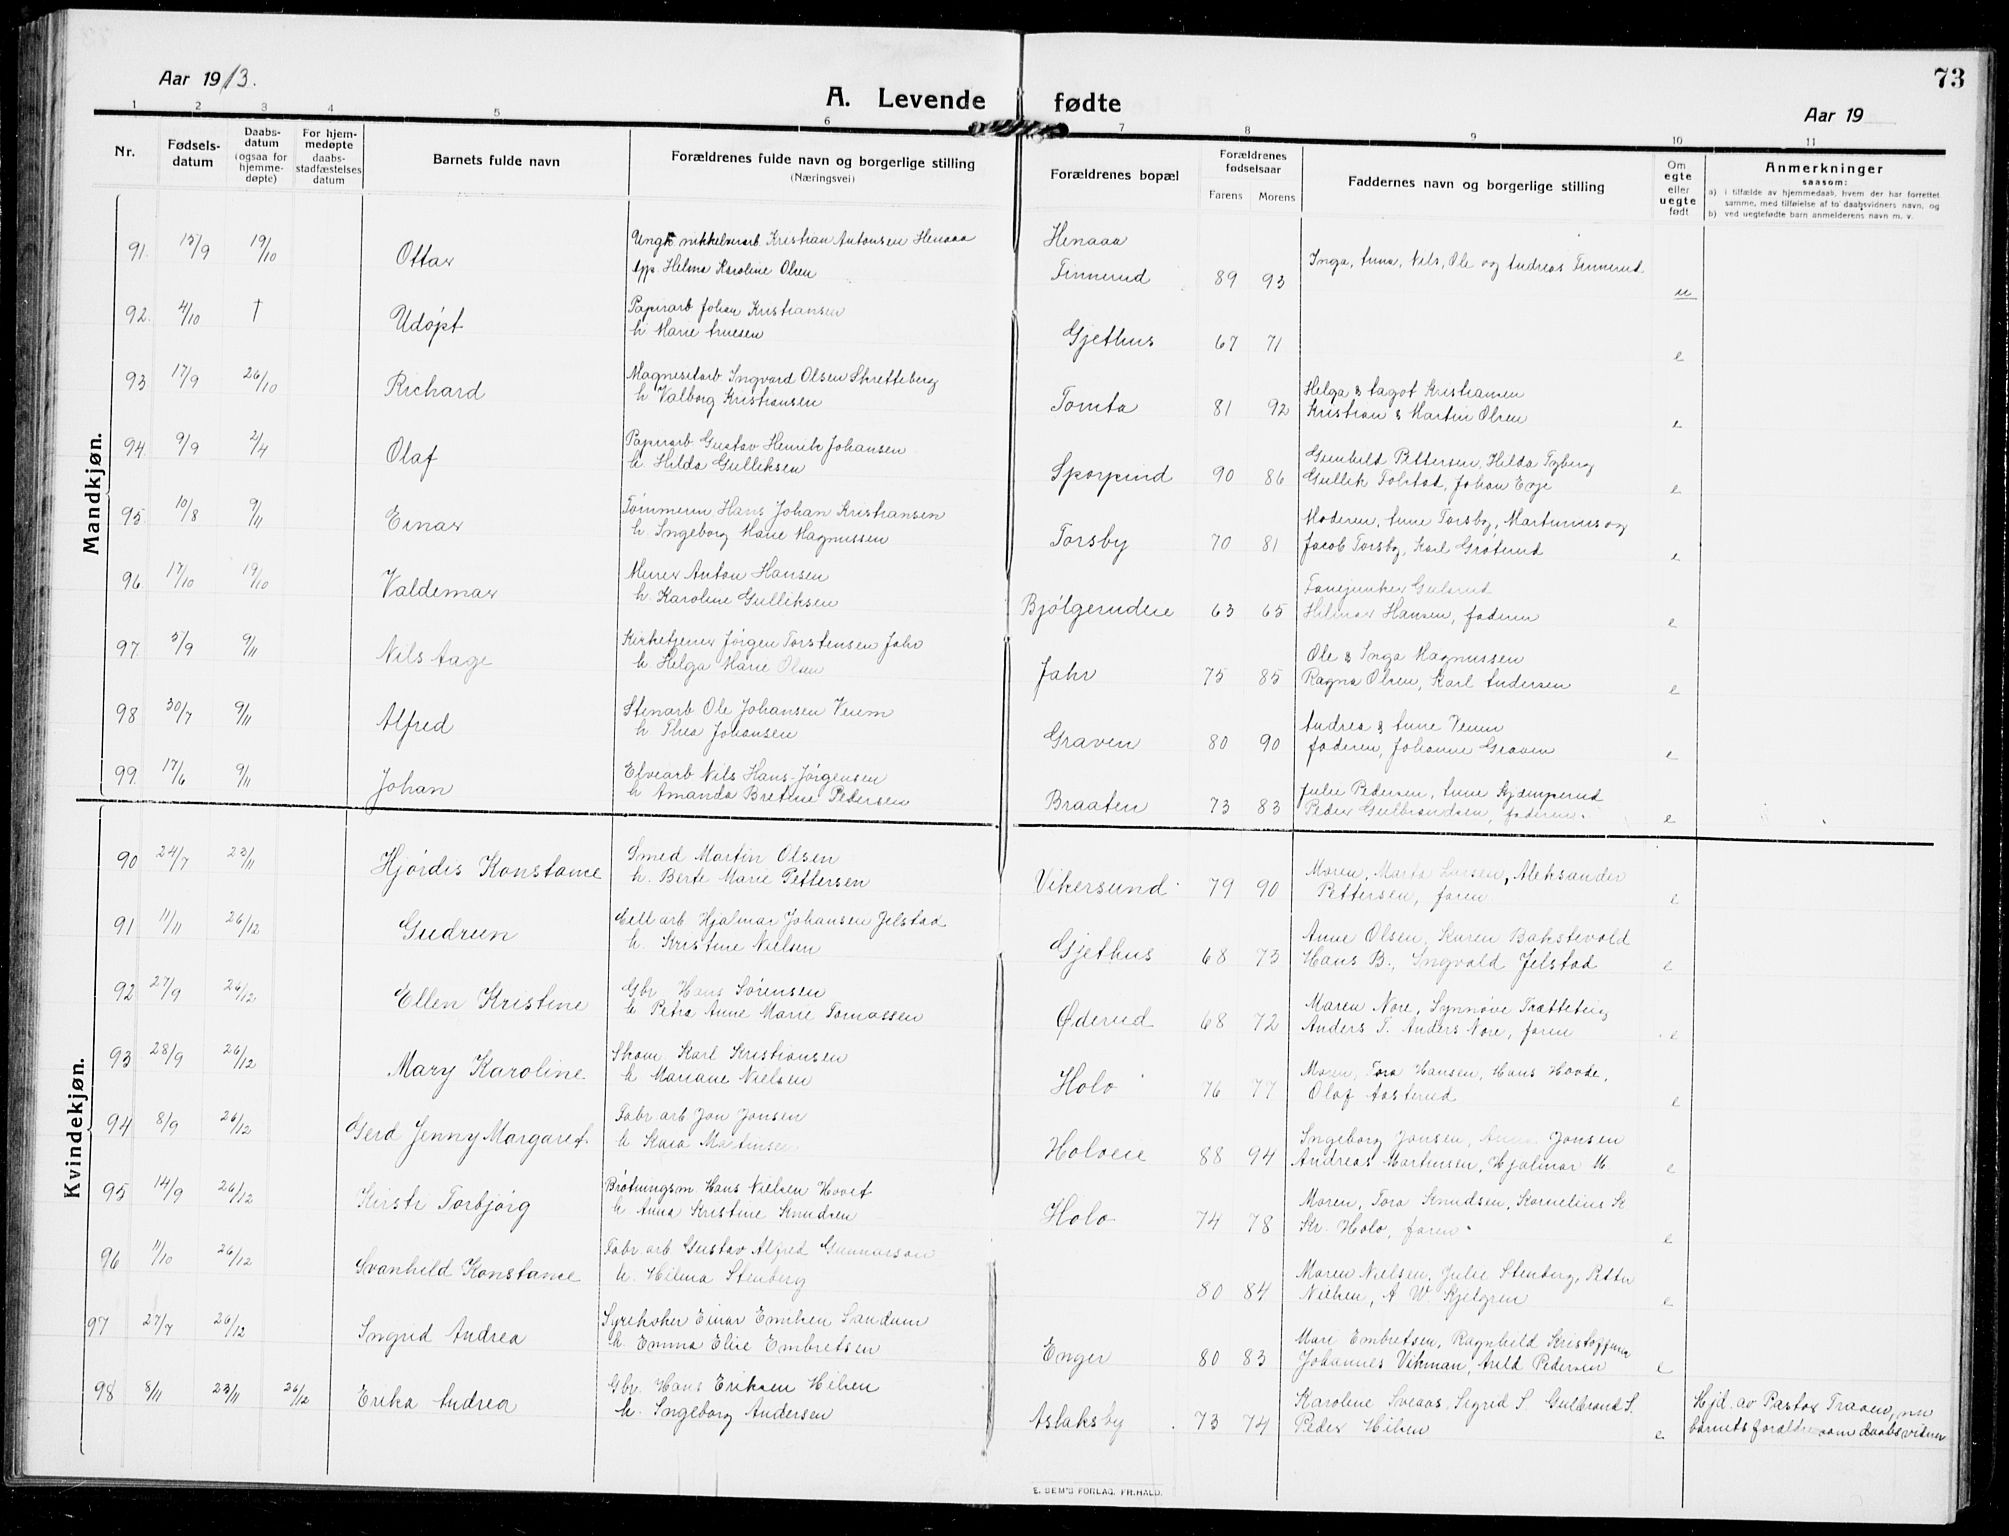 73
Aar 1913.
A. Levende fødte
Aar 19
1 2 3 4 5 6 7 8 9 10 11
Nr.
Fødsels-
datum
Daabs-
datum
(ogsaa for
hjemme-
døpte)
For hjem-
medøpte
daabs-
stadfæstelses
datum
Barnets fulde navn
Forældrenes fulde navn og borgerlige stilling
(Næringsvei)
Forældrenes bopæl
Forældrenes
fødselsaar
Farens Morens
Faddernes navn og borgerlige stilling
Om
egte
eller
uegte
født
Anmerkninger
saasom:
a) i tilfælde av hjemmedaab, hvem der har forrettet
samme, med tilføielse av to daabsvidners navn, og
b) ved uegtefødte barn anmelderens navn m. v.
Mandkjøn.
91. 15/9 19/10 Ottar
Ungk. nikkelverkarb Kristian Antonsen Henaaa
pp. Helma Karoline Olsen
Henaaa
Finnerud 89 93
Inga, Anna, Nils, Ole og Andreas Finnerud
u
92. 4/10 † Udøpt
Papirarb Johan Kristiansen
h Marie Arnesen
Gjethus 67 71
e
93 17/9 26/10 Richard
Magnesitarb Ingvard Olsen Skretteberg
h Valborg Kristiansen
Tomta 81 92
Helga & Aagot Kristiansen
Kristian & Martin Olsen
e
94. 9/9 2/4 Olaf
Papirarb Gustav Henrik Johansen
h. Hilda Gulliksen
Sporpind 90 86
Gunhild Pettersen, Hilda Tyberg
Gullik Tolstad, Johan Egge
e
95 10/8 9/11 Einar
Tømmerm Hans Johan Kristiansen
h Ingeborg Marie Magnussen
Torsby 70 81
Moderen, Anne Torsby, Martinius og
Jacob Torsby, Karl Groterud
e
96. 17/10 19/10 Valdemar
Murer Anton Hansen
h. Karoline Gulliksen
Bjølgerudeie 63 65
Fanejunker Gulsrud
Hilmar Hansen, faderen
e
97 5/9 9/11 Nils Aage
Kirketjener Jørgen Torstensen Jahr
h. Helga Marie Olsen
Jahr 75 85
Ole & Inga Magnussen
Ragna Olsen, Karl Andersen
e
98 30/7 9/11 Alfred
Stenarb Ole Johansen Veum
h Thea Johansen
Graven 80 90
Andrea & Anne Veum
faderen, Johanne Graven
e
99. 17/6 9/11 Johan
Elvearb Nils Hans Jørgensen
h Amanda Bretine Pedersen
Braaten 73 83
Julie Pedersen, Anne Kjæmperud
Peder Gulbrandsen, faderen.
e
Kvindekjøn.
90 24/7 23/11 Hjørdis Konstance
Smed Martin Olsen
h. Berte Marie Pettersen
Vikersund 79 90
Moren, Marta Larsen, Aleksander
Pettersen, faren
e
91 11/11 26/12 Gudrun
Cell arb Hjalmar Johansen Jelstad
h. Kristine Nielsen
Gjethus 68 73
Anne Olsen, Karen Bakstevold
Hans B., Ingvald Jelstad
e
92 27/9 26/12 Ellen Kristine
Gbr Hans Sørensen
h Petra Anne Marie Tomassen
Øderud 68 72
Maren Nore, Synnøve Trætteteig
Anders T. Anders Nore, faren
e
93 28/9 26/12 Mary Karoline
Skom. Karl Kristiansen
h Mariane Nielsen
Holo 76 77
Moren, Tora Hansen, Hans Hovde,
Olaf Aasterud
e
94 8/9 26/12 Gerd Jenny Margaret
Fabr. arb Jon Jonsen
h Kaia Martinsen
Holoeie 88 94
Ingeborg Jonsen, Anna Jonsen
Andreas Martinsen, Hjalmar M.
e
95 14/9 26/12 Kirsti Torbjørg
Brøtningsm. Hans Nielsen Hovet
h Anna Kristine Knudsen
Holo 74 78
Moren, Tora Knudsen, Kornelius K
Kr. Holo, faren
e
96 11/10 26/12 Svanhild Konstance
Fabr. arb Gustav Alfred Gunnarson
h. Hilma Stenberg
80 84
Maren Nielsen, Julie Stenberg, Petter
Nielsen, A W. Kjelgren
e
97 27/7 26/12 Ingrid Andrea
Syrekoker Einar Emilsen Sandum
h. Emma Elise Embretsen
Enger 80 83
Mari Embretsen, Ragnhild Kristoffersen
Johannes Vikman, Arild Pedersen
e
98 8/11 23/11 26/12 Erika Andrea
Gbr. Hans Eriksen Hilsen
h. Ingeborg Andersen
Aslaksby 73 74
Karoline Sveaas, Sigrid S. Gulbrand S.
Peder Hilsen
e
Hjd. av Pastor Traaen,
barnets forældre som daabsvidner
E. SEM'S FORLAG, FR.HALD.